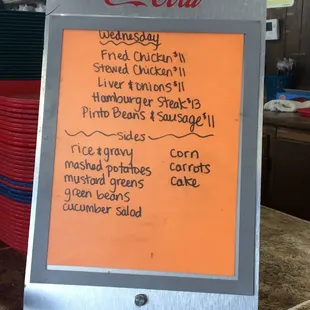 Coca-Cola
Wednesday
Fried Chicken $11
Stewed Chicken $11
Liver & onions $11
Hamburger Steak $13
Pinto Beans & Sausage $11
Sides
rice & gravy
mashed potatoes
mustard greens
green beans
cucumber salad
corn
carrots
cake